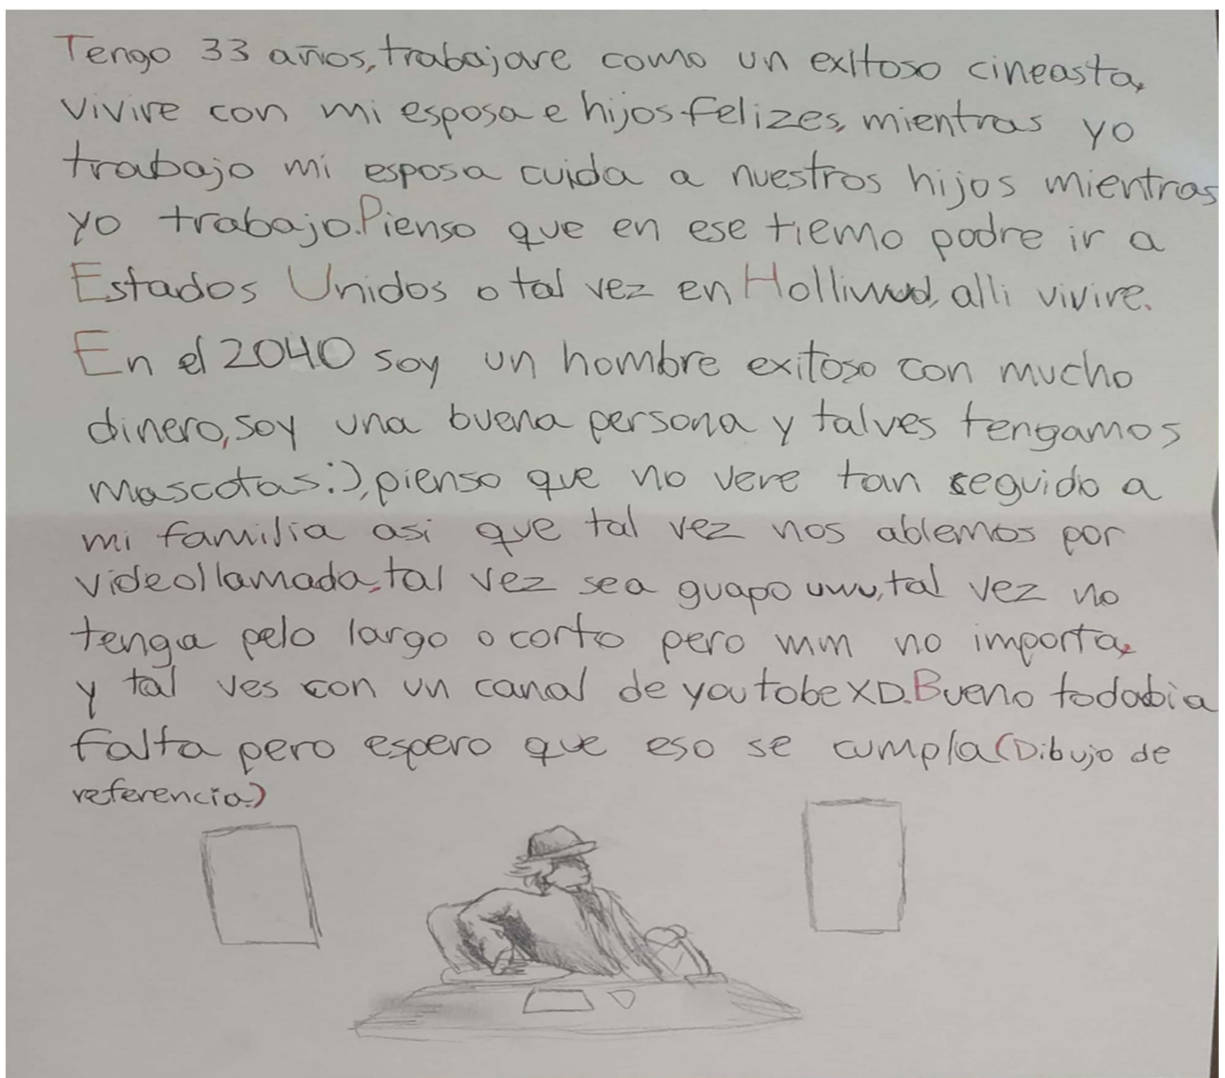 Tengo 33 años, trabajare como un exitoso cineasta,
vivire con mi esposa e hijos felizes, mientras yo
trabajo mi esposa cuida a nuestros hijos mientras
yo trabajo. Pienso que en ese tiemo podre ir a
Estados Unidos o tal vez en Holliwud, alli vivire.
En el 2040 soy un hombre exitoso con mucho
dinero, soy una buena persona y talves tengamos
mascotas:), pienso que no vere tan seguido a
mi familia asi que tal vez nos ablemos por
videollamada, tal vez sea guapo uwu, tal vez no
tenga pelo largo o corto pero mm no importa,
y tal ves con un canal de youtobe XD. Bueno todabia
falta pero espero que eso se cumpla (Dibujo de
referencia.)